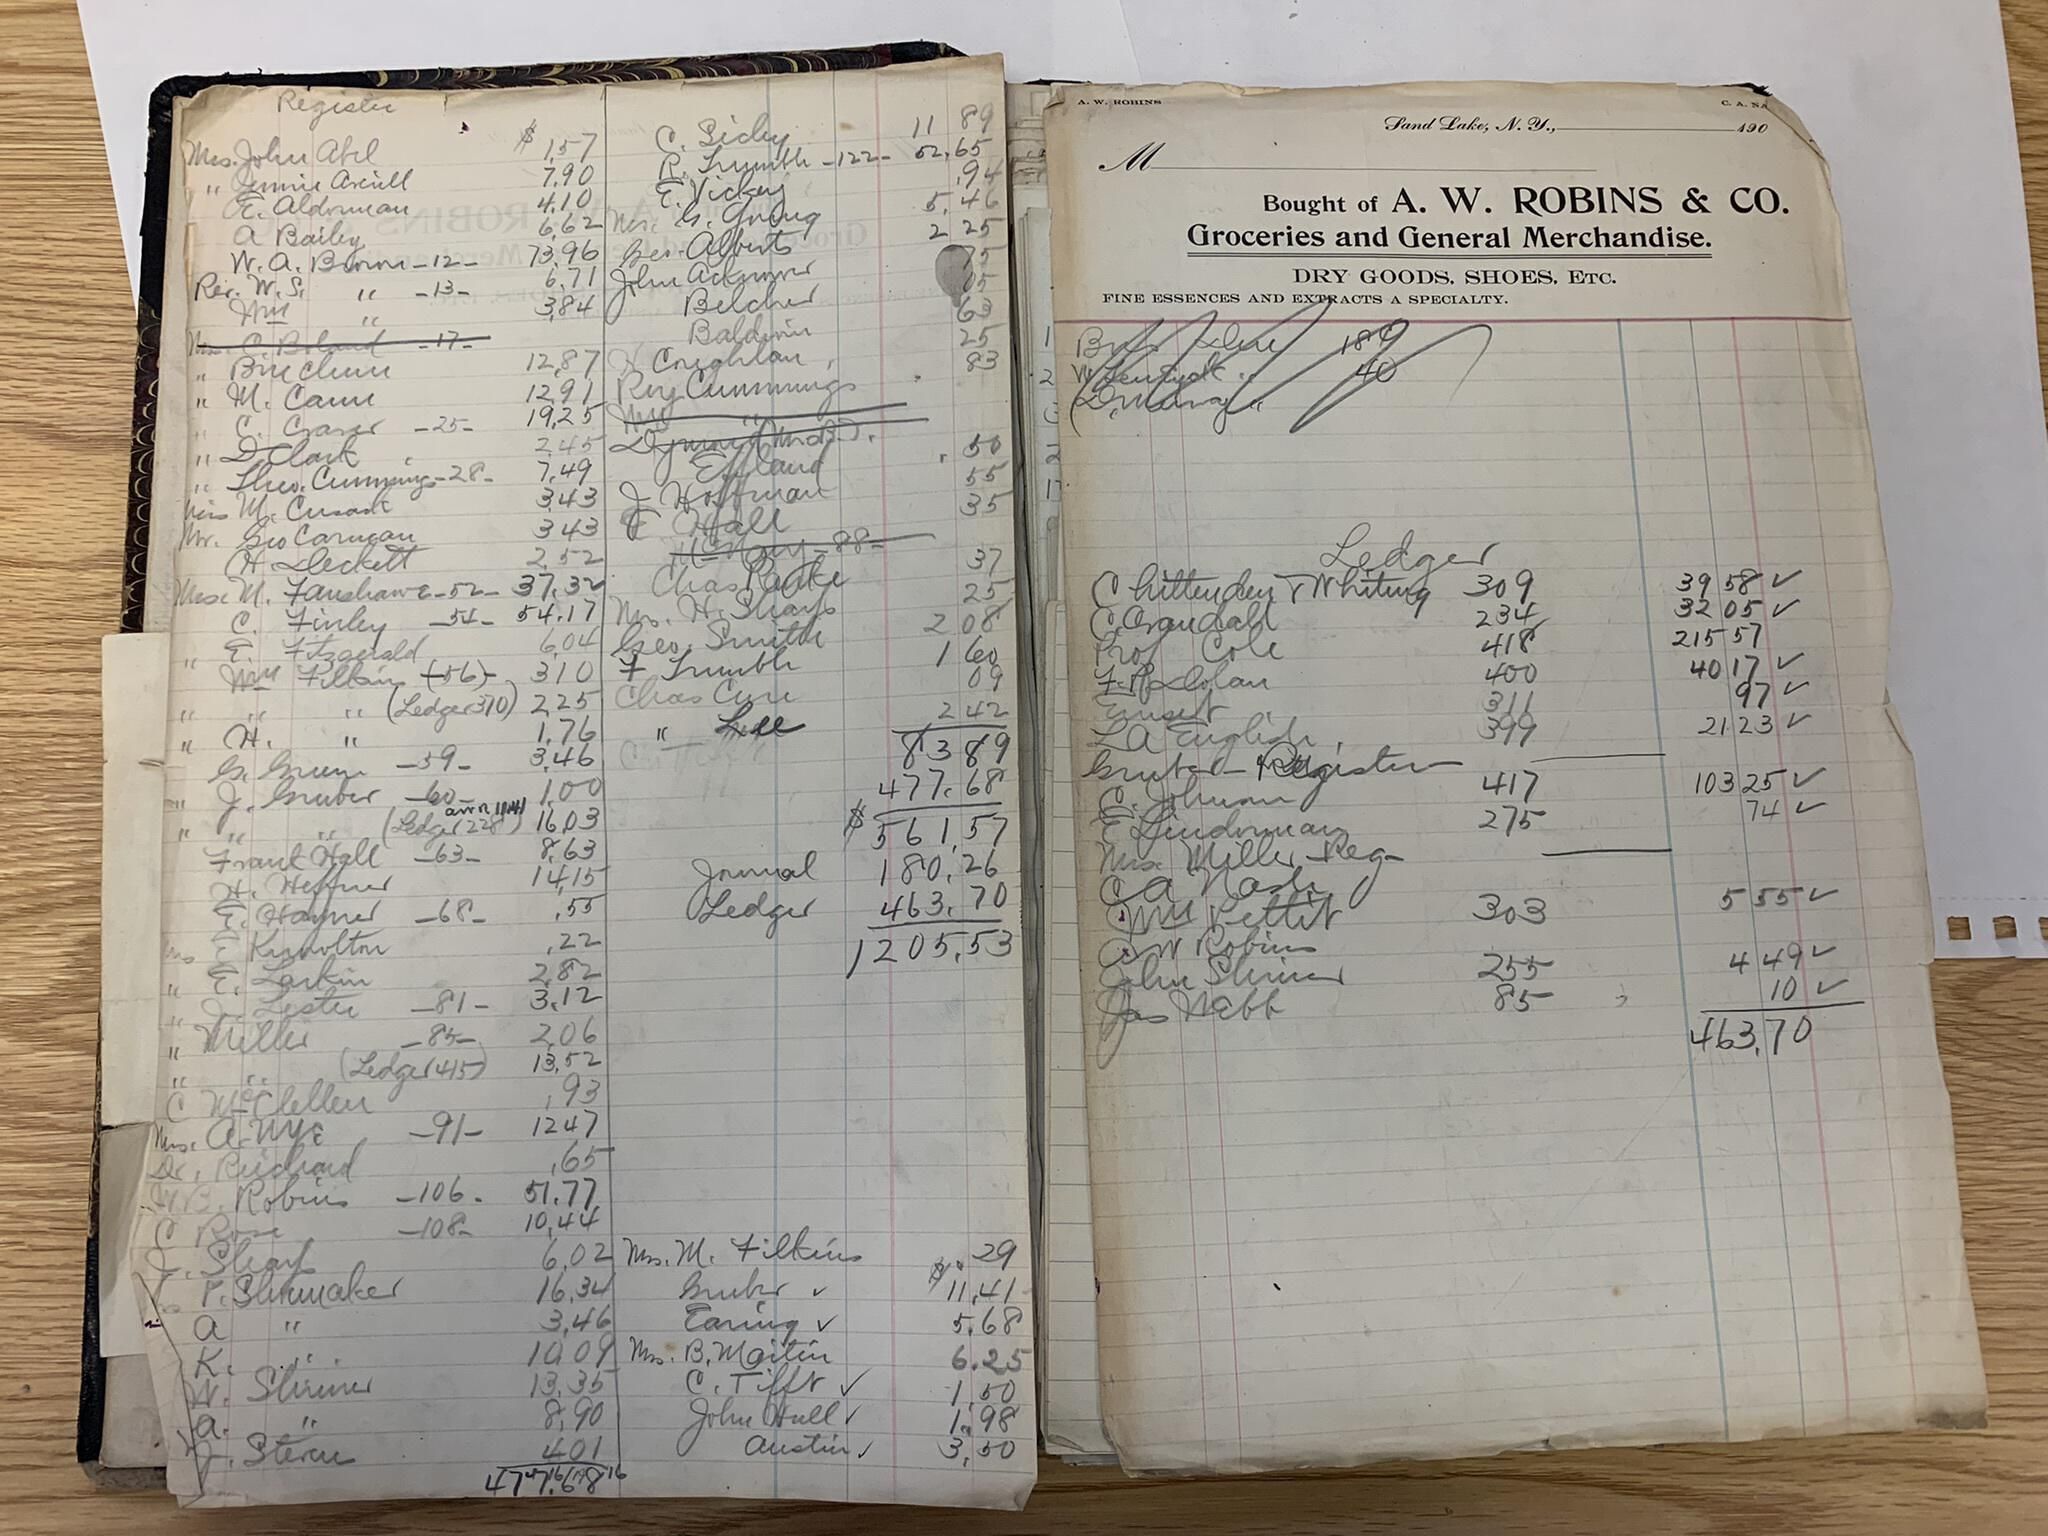 Register
Mrs. John Abel $ 1,57
" Jennie Averill 7,90
E. Alderman 4,10
A Bailey 6,62
W. A. Brown -12- 73,96
Rev. W. S. " -13- 6,71
Wm " 3,84
Mrs. C. Boland -17-
" 12,87
" M. Cann 12,91
" C. Craver -25- 19,25
" D Clark 2,45
" Theo. Cummings -28- 7,49
M. Cusack 3,43
Mr. Geo Carman 3 43
H. Deckett 2,52
Mrs. M. Fanshawe -52- 37,32
C. Finley -54- 54.17
" E. Fitzgerald 6,04
Wm Filkins (-56)- 3 10
" " " (Ledger 370) 2,25
" H. " 1,76
G. Green -59- 3,46
" J. Gruber -60- 1,00
" " " (Ledger 228) 16,03
Frank Hall -63- 8,63
H. Heffner 14,15
E. Hayner -68- ,55
E Knowlton ,22
" E. Larkin 2,82
" J. Lester -81- 3,12
" Miller -85- 2,06
" " (Ledger 415) 13,52
C McClellen ,93
Mrs. A. Nye -91- 12 47
Dr. Reichard ,65
W. B. Robins -106- 51,77
C Rose -108- 10,44
J. Sharp 6,02
P. Shumaker 16,34
A " 3,46
K. " 10,09
W. Shriner 13,35
A. " 8,90
J. Stern 4 01
477.68
C. Sicly 11 89
R. Trumble -122- 52,65
E. Vickey ,94
Mrs. G. Young 5,46
Geo. Alberts 2 25
John Ackner 75
Belcher 05
Baldwin 63
Creighton 25
Roy Cummings 83
Wm "
England .50
J. Hoffman 55
F Hall 35
McNary -88-
Chas 37
Mrs. H. Sharp 25
Geo. Smith 2 08
F Trumble 1 60
Chas Cure 09
" Lee 2 42
83 89
477.68
$ 561,57
Journal 180,26
Ledger 463,70
1205,53
Mrs. M. Filkins .29
Gruber ✓ $11,41
Earing ✓ 5,68
Mrs. B. Martin 6.25
C. Tifft ✓ 1,50
John Hull ✓ 1.98
Austin ✓ 3,50
A. W. ROBINS C. A. NA
Sand Lake, N. Y., 190
M
Bought of A. W. ROBINS & CO.
Groceries and General Merchandise.
DRY GOODS, SHOES, ETC.
FINE ESSENCES AND EXTRACTS A SPECIALTY.
189
W TenEyck 40
Ledger
Chittenden & Whiting 309 39 58 ✓
C. Crandall 234 32 05 ✓
Prof Cole 418 215 57
F. R. Dolan 400 40 17 ✓
Ernest 311 97 ✓
L A English 399 21 23 ✓
Gruber - Register
C. Johnson 417 103 25 ✓
E Linderman 275 74 ✓
Mrs. Miller Reg-
C A Nash
Wm Pettit 303 5 55 ✓
A. W Robins
John Shriner 255 4 49 ✓
Jas Webb 85 10 ✓
463,70